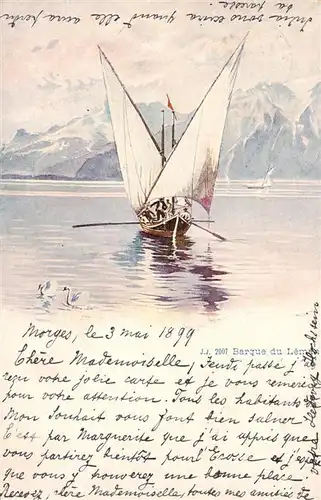 Morges, le 3 mai 1899
J.J. 2007 Barque du Lém
Chère Mademoiselle, Jeudi passé j'
reçu votre jolie carte et je vous remercie
pour votre attention. Tous les habitants
Mon Souhait vous font bien saluer
C'est par Marguerite que j'ai appris que
vous partirez bientôt pour l'Ecosse et j'esp
que vous y trouverez une bonne place.
Recevez, chère Mademoiselle, toutes les amitiés de
Julia vous écrira quand elle aura perdu
sa paresse.